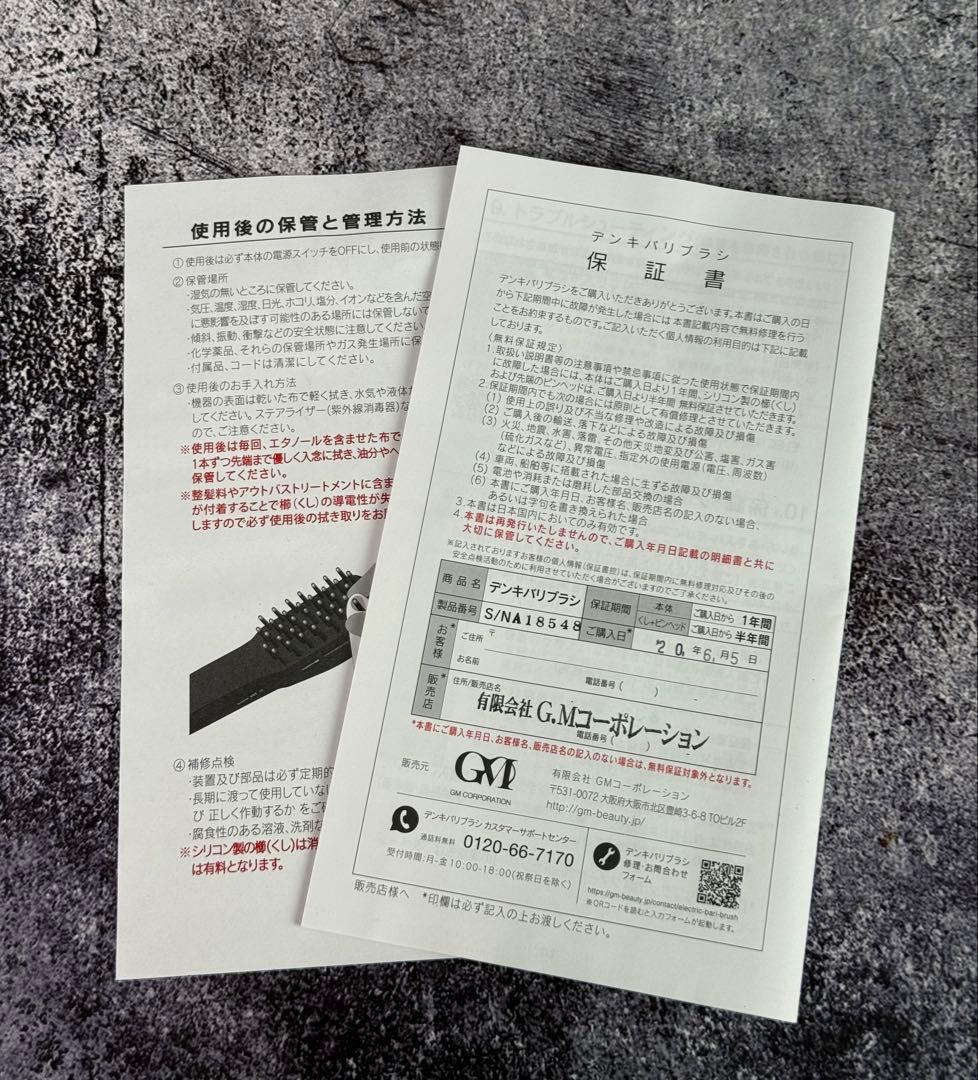 使用後の保管と管理方法
①使用後は必ず本体の電源スイッチをOFFにし、使用前の状態
②保管場所
・湿気の無いところに保管してください。
・気圧、温度、湿度、日光、ホコリ、塩分、イオンなどを含んだ空
に悪影響を及ぼす可能性のある場所には保管しない
・傾斜、振動、衝撃などの安全状態に注意してください
・化学薬品、それらの保管場所やガス発生場所に保
・付属品、コードは清潔にしてください。
③使用後のお手入れ方法
・機器の表面は乾いた布で軽く拭き、水気や液体
してください。ステアライザー(紫外線消毒器)な
ので、ご注意ください。
※使用後は毎回、エタノールを含ませた布で
1本ずつ先端まで優しく入念に拭き、油分や
保管してください。
※整髪料やアウトバストリートメントに含ま
が付着することで櫛(くし)の導電性が失
しますので必ず使用後の拭き取りをお
④補修点検
・装置及び部品は必ず定期的
・長期に渡って使用していな
び 正しく作動するか をご
・腐食性のある溶液、洗剤な
※シリコン製の櫛(くし)は消
は有料となります。
デンキバリブラシ
保 証 書
デンキバリブラシをご購入いただきありがとうございます。本書はご購入の日
から下記期間中に故障が発生した場合には 本書記載内容で無料修理を行う
ことをお約束するものです。ご記入いただく個人情報の利用目的は下記に記載
しております。
〈無料保証規定〉
1.取扱い説明書等の注意事項や禁忌事項に従った使用状態で保証期間内
に故障した場合には、本体はご購入日より1年間、シリコン製の櫛(くし)
および先端のピンヘッドは、ご購入日より半年間 無料保証させていただきます。
2.保証期間内でも次の場合には原則として有償修理とさせていただきます。
(1) 使用上の誤り及び不当な修理や改造による故障及び損傷
(2) ご購入後の輸送、落下などによる故障及び損傷
(3) 火災、地震、水害、落雷、その他天災地変及び公害、塩害、ガス害
(硫化ガスなど)、異常電圧、指定外の使用電源(電圧、周波数)
などによる故障及び損傷
(4) 車両、船舶等に搭載された場合に生ずる故障及び損傷
(5) 電池や消耗または磨耗した部品交換の場合
(6) 本書にご購入年月日、お客様名、販売店名の記入のない場合、
あるいは字句を書き換えられた場合
3.本書は日本国内においてのみ有効です。
4.本書は再発行いたしませんので、ご購入年月日記載の明細書と共に
大切に保管してください。
※記入されておりますお客様の個人情報(保証書控)は、保証期間内に無料修理対応及びその後の
安全点検活動のために利用させていただく場合がございますのでご了承ください。
商品名 デンキバリブラシ 保証期間 本体 ご購入日から 1年間
くし+ピンヘッド ご購入日から 半年間
製品番号 S/NA18548 ご購入日* 年6月5日
お客様* ご住所 〒
お名前 電話番号( )
販売店* 住所/販売店名
有限会社 G.Mコーポレーション
電話番号( )
*本書にご購入年月日、お客様名、販売店名の記入のない場合は、無料保証対象外となります。
販売元 GM GM CORPORATION
有限会社 GMコーポレーション
〒531-0072 大阪府大阪市北区豊崎3-6-8 TOビル2F
http://gm-beauty.jp/
デンキバリブラシ カスタマーサポートセンター
通話料無料 0120-66-7170
受付時間:月-金 10:00-18:00(祝祭日を除く)
デンキバリブラシ
修理・お問合わせ
フォーム
https://gm-beauty.jp/contact/electric-bari-brush
※QRコードを読むと入力フォームが起動します。
販売店様へ *印欄は必ず記入の上お渡しください。